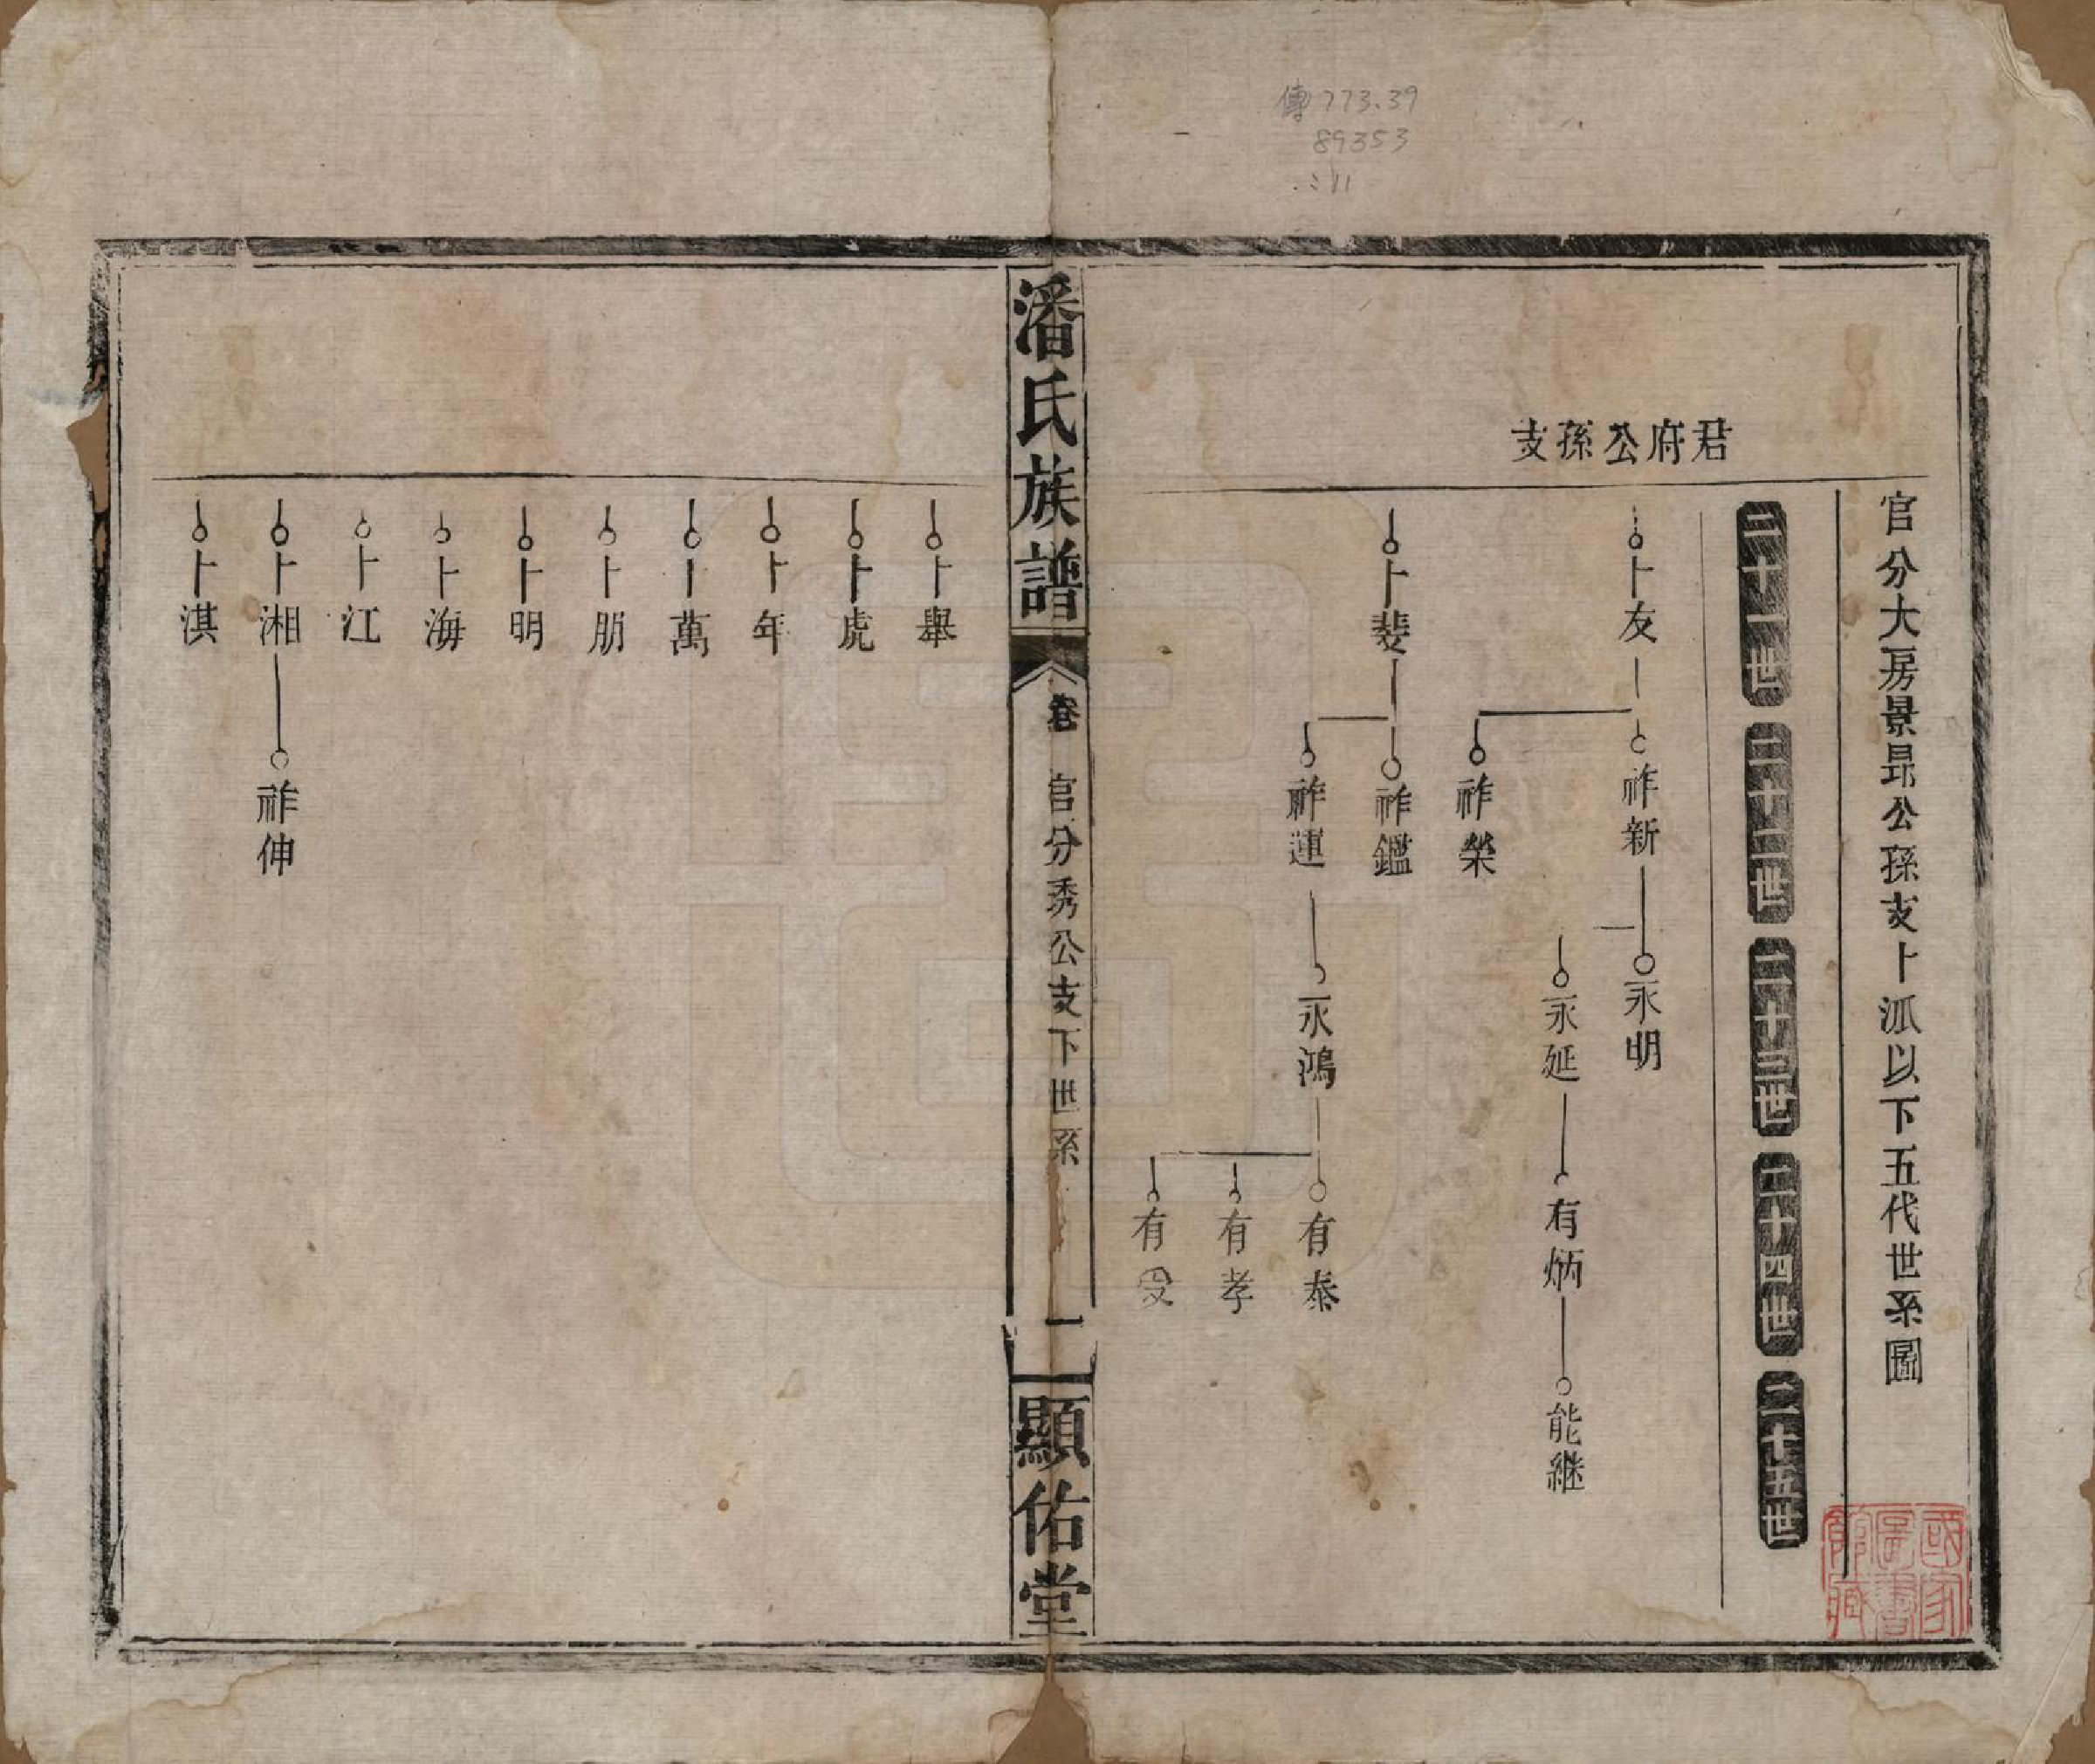 傳773.39
89353
:11
官分大房景昻公孫支卜派以下五代世系圖
二十一世
二十二世
二十三世
二十四世
二十五世
君府公孫支
卜友
祚新
永明
永延
有炳
能継
祚榮
卜斐
祚鑑
祚運
永鴻
有泰
有孝
有
潘氏族譜
卷
官分秀公支下世系
一
顯佑堂
卜舉
卜虎
卜年
卜萬
卜朋
卜明
卜海
卜江
卜湘
祚伸
卜淇
國家
圖書
館藏